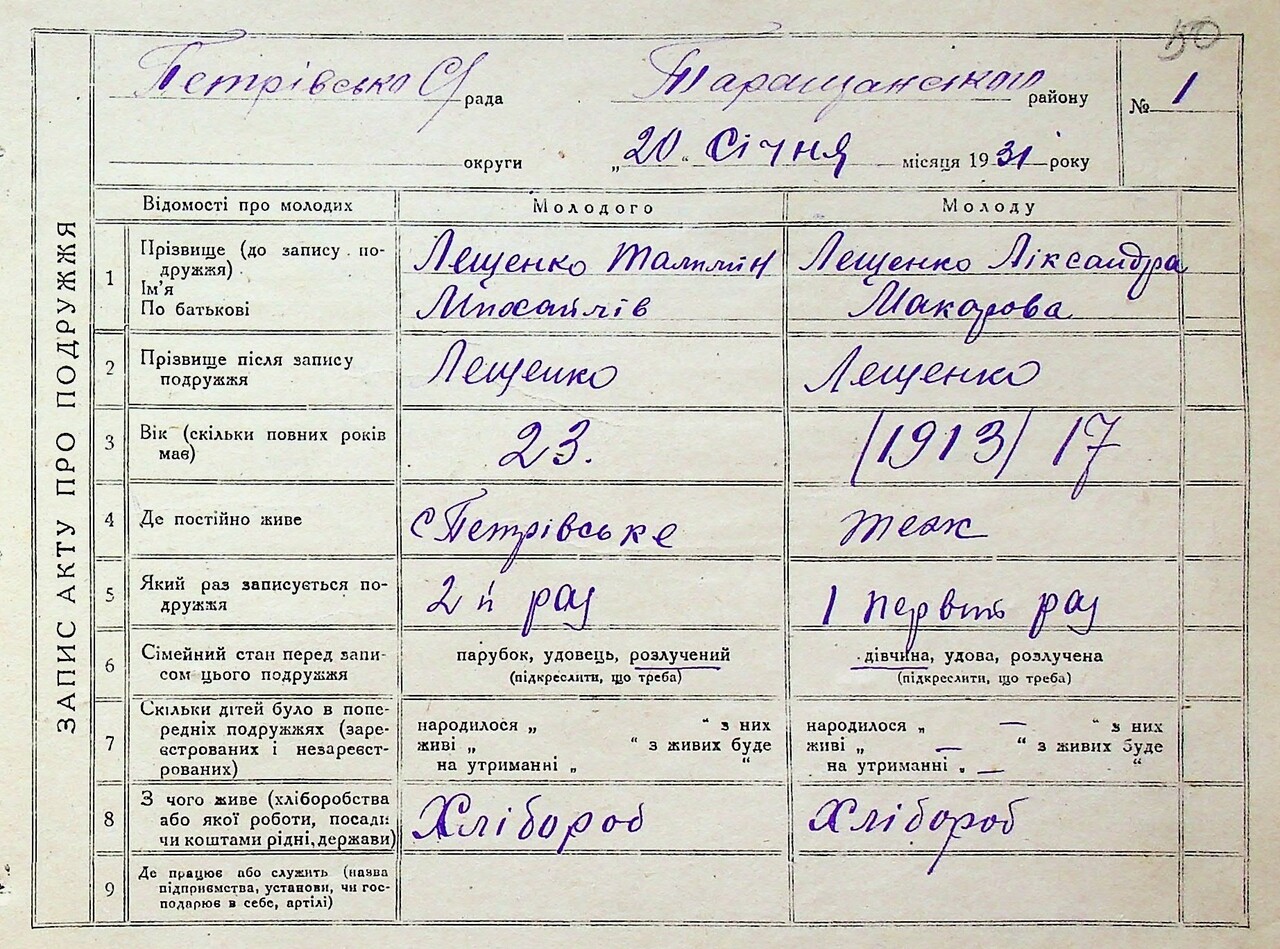 50
Петрівська С/ рада Таращанського району № 1
округи „20“ Січня місяця 1931 року
ЗАПИС АКТУ ПРО ПОДРУЖЖЯ
Відомості про молодих Молодого Молоду
1 Прізвище (до запису подружжя) Лещенко Лещенко Ліксандра
Ім'я
По батькові Михайлів Макарова
2 Прізвище після запису Лещенко Лещенко
подружжя
3 Вік (скільки повних років 23. /1913/ 17
має)
4 Де постійно живе с Петрівське теж
5 Який раз записується по- 2й раз 1 первий раз
дружжя
6 Сімейний стан перед запи- парубок, удовець, розлучений дівчина, удова, розлучена
сом цього подружжя (підкреслити, що треба) (підкреслити, що треба)
7 Скільки дітей було в попе-
редніх подружжях (заре- народилося „ “ з них народилося „ — “ з них
єстрованих і незареєст- живі „ “ з живих буде живі „ — “ з живих буде
рованих) на утриманні „ “ на утриманні „ — “
8 З чого живе (хліборобства Хлібороб Хлібороб
або якої роботи, посади
чи коштами рідні, держави)
9 Де працює або служить (назва
підприємства, установи, чи гос-
подарює в себе, артілі)